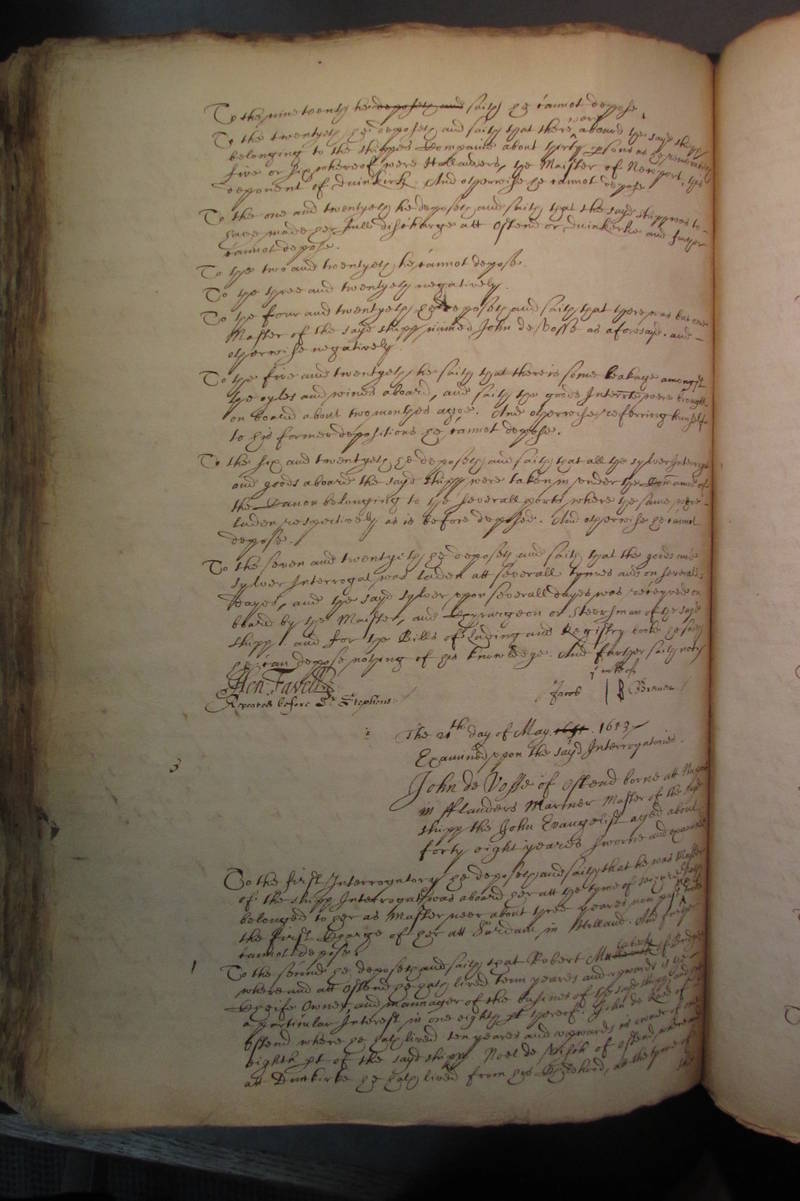 To the nineteenth he deposeth and saith he cannot depose
To the twentyeth he deposeth and saith that there were aboard the sayd shipp
belonging to the shipps Companie about thirty persons as he remembreth
five or six whereof were Hollanders, the Maister of Newport, this
deponent of Duinkirk And otherwise he cannot depose
To the one and twentyeth he deposeth and saith that the sayd shipp was to
have made her full discharge att Ostend or Duinkerke and further
cannot depose.
To the two and twentyeth he cannot depose.
To the three and twentyeth negatively.
To the four and twentyeth he deposeth and saith that there was but one
Master of the sayd shipp named John de Vosse as aforesayd. and
otherwise negatively
To the five and twentyeth he saith that there is some leakage amongst
the oyles and wines aboard, and saith the goods Interrate were brought
on board about two monthes agoe. And otherwise referring himselfe
to his former depositions he cannot depose.
To the six and twentyeth he deposeth and saith that all the sylver Interrogate
and goods aboard the sayd shipp were taken in under the
the Canon belonging to the severall ports where the same were
laden respectively as is before deposed. And otherwise he cannot
depose.
To the seven and twentyeth he deposeth and saith that the goods and
sylver Interrogate was laden att severall tymes and on severall
dayes, and the sayd sylver upon severall dayes was received on
board by the Maister, and Chyrurgeon or Steersman of the sayd
shipp and for the Bills of Lading and Registry he saith
he can depose nothing of his knowledge. And further saith not
Hen: Favell
Repeated before Dr Stephins
Jacob
The 20th day of May. 1653
Examined upon the sayd Interrogatories.
3
John de Vosse of Ostend borne att
in fflanders Mariner Master of the sayd
shipp the John Evangelist aged about
forty eight yeares sworne and examined
To the first Interrogatory he deposeth and saith that he was Master
of the shipp Interrogate, was aboard her att the tyme of
belonged to her as Master neer about three yeares now past
the first Charge of her att Sardam in Holland. And further
cannot depose.
1
To the second he deposeth and saith that Robert
where and att Ostend he hath lived tenn yeares and upwards is the
Cheife Owner, and mannager of the busines of the sayd shipp
a particular Interest in one eighth pt thereof: John de
Ostend where he hath lived ten yeares and upwards is owner of one
eighth pt of the sayd shipp Noel de of Ostend,
att Dunkirke he hath lived from his Childhood, att the tyme of